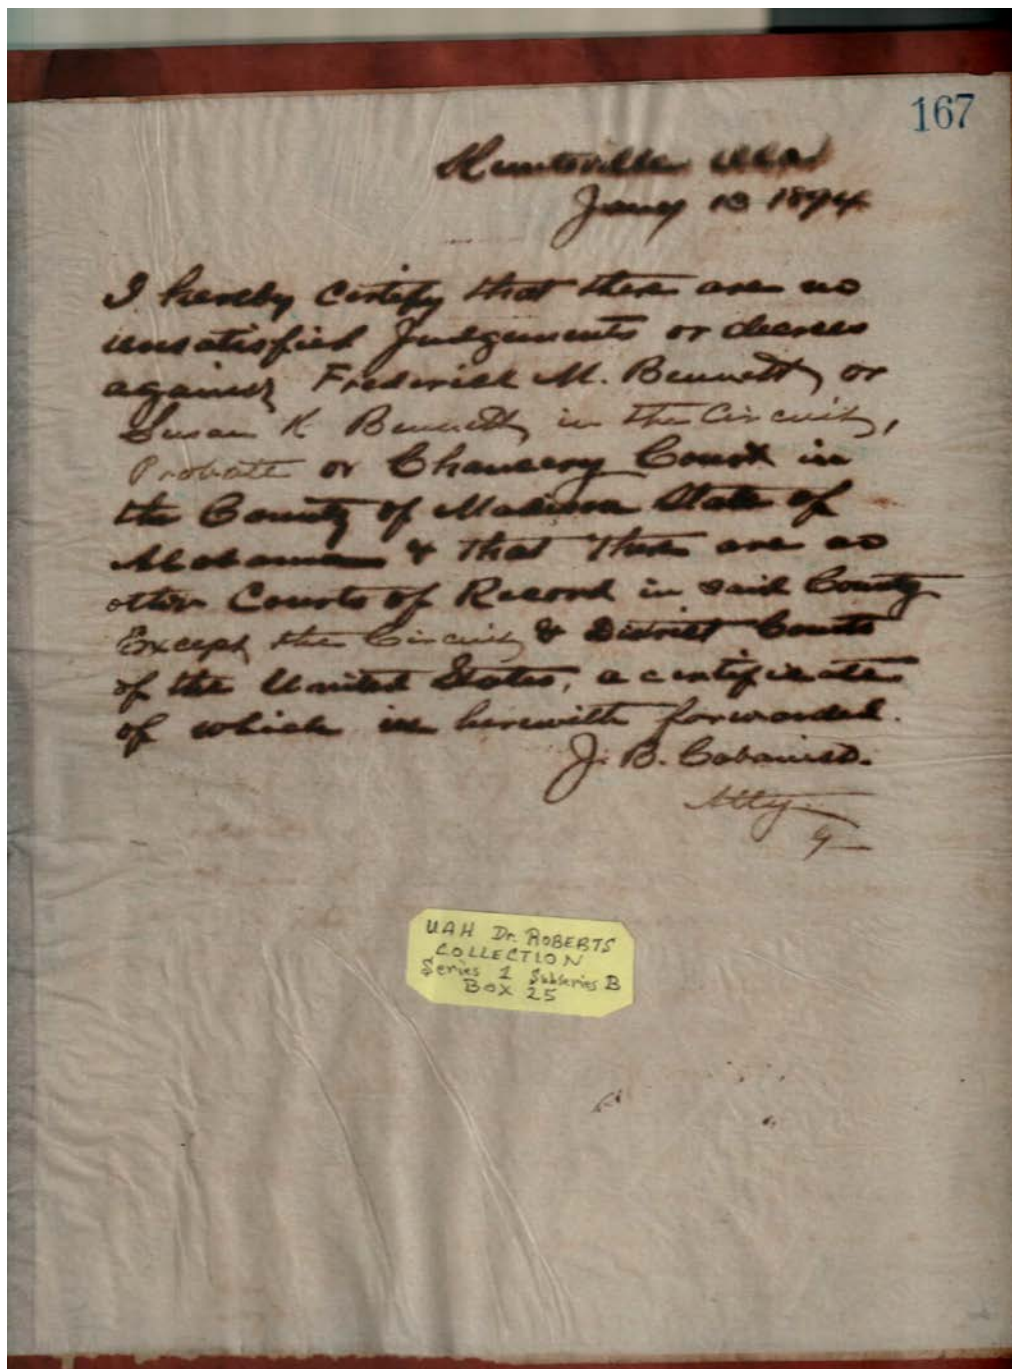 167
Huntsville Ala
Jany 13 1894
I hereby certify that there are no
unsatisfied Judgements or decrees
against Frederick M. Bennett or
Susan K Bennett in the Circuit,
Probate or Chancery Court in
the County of Madison State of
Alabama & that there are no
other Courts of Record in said County
Except the Circuit & District Courts
of the United States, a certificate
of which is herewith forwarded.
J. B. Cabaniss.
Atty.
UAH Dr. ROBERTS
COLLECTION
Series 1 Subseries B
BOX 25